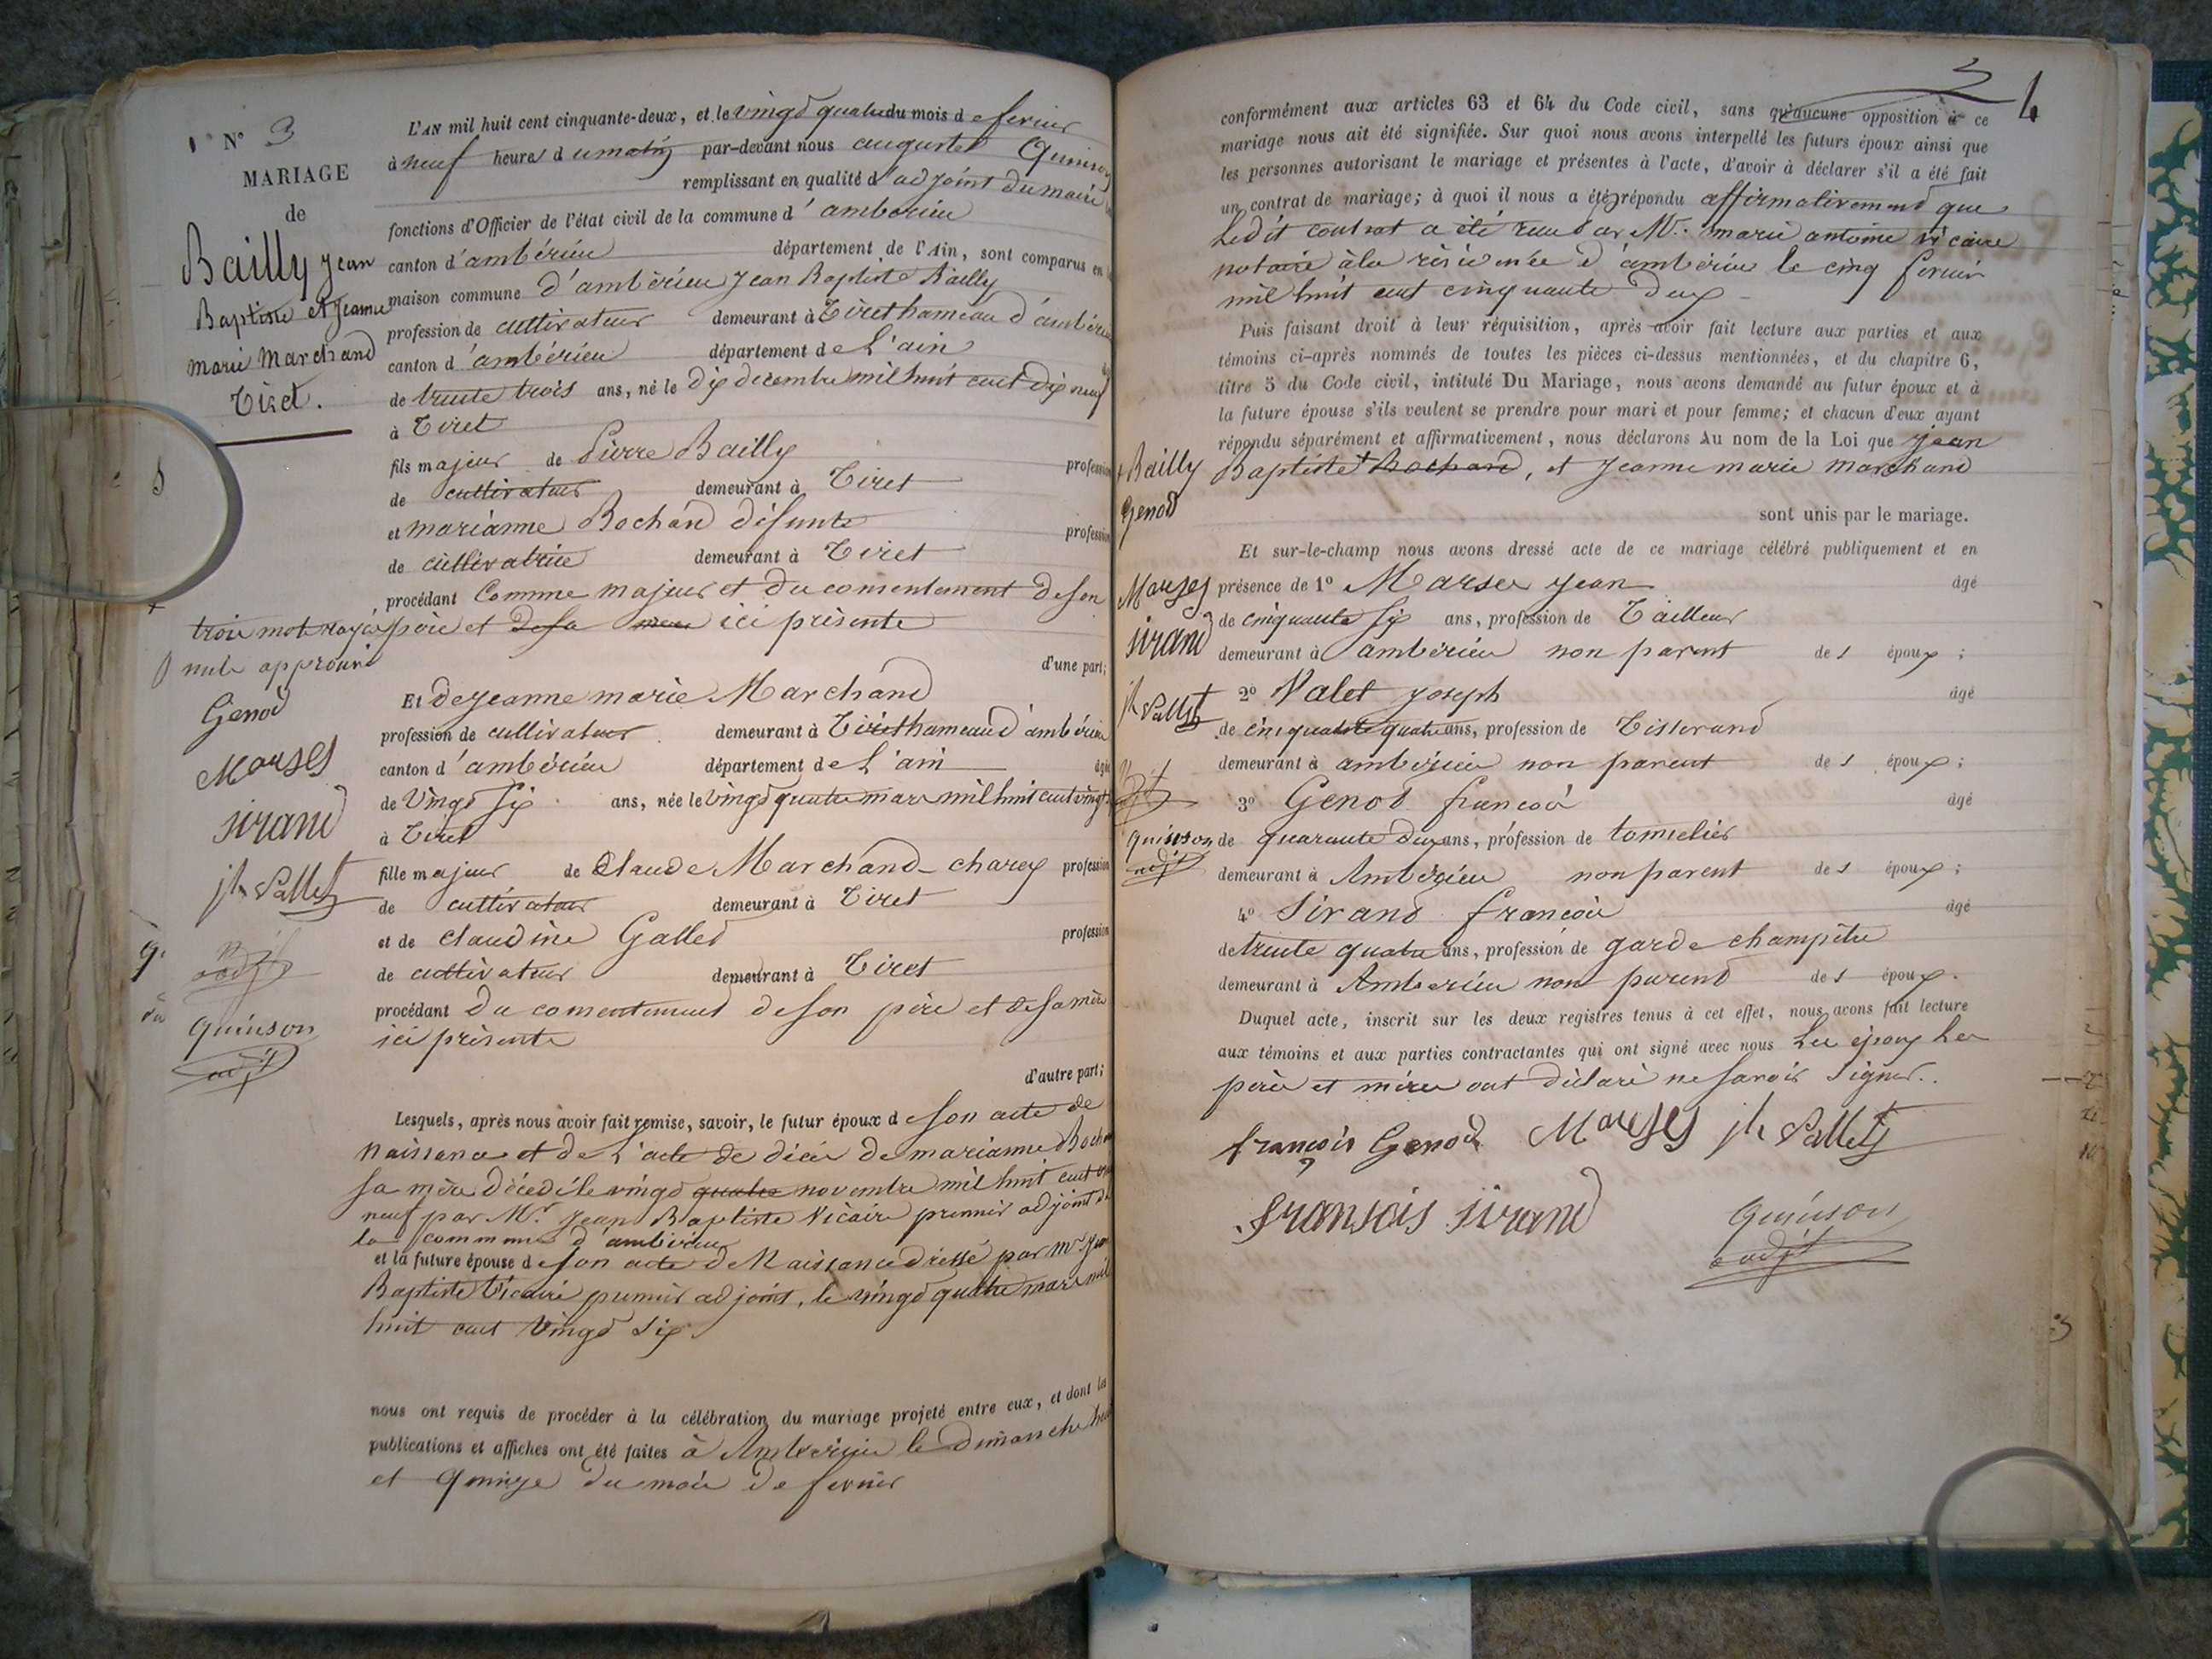 N° 3
MARIAGE
de
Bailly Jean
Baptiste et Jeanne
marie Marchand
Tiret.
L'AN mil huit cent cinquante-deux, et le vingt quatre du mois de fevrier
à neuf heures du matin par-devant nous auguste Quinson
remplissant en qualité d'adjoint du maire
fonctions d'Officier de l'état civil de la commune d'ambérieu
canton d'ambérieu département de l'Ain, sont comparus en
maison commune d'ambérieu Jean Baptiste Bailly
profession de cultivateur demeurant à Tiret hameau d'ambérieu
canton d'ambérieu département de L'ain
de trente trois ans, né le dix decembre mil huit cent dix neuf
à Tiret
fils majeur de Pierre Bailly profession
de cultivateur demeurant à Tiret
et marianne Bochard défunte profession
de cultivatrice demeurant à Tiret
procédant Comme majeur et du consentement de son
père et de sa mère ici présente
trois mots rayés
nuls approuvé
Genod
Marses
sirand
jh Vallet
adjt
quinson
adjt
d'une part;
Et de Jeanne marie Marchand
profession de cultivateur demeurant à Tiret hameau d'ambérieu
canton d'ambérieu département de L'ain âgée
de Vingt Six ans, née le vingt quatre mars mil huit cent vingt
à Tiret
fille majeur de Claude Marchand-charex profession
de cultivateur demeurant à Tiret
et de Claudine Galled profession
de cultivateur demeurant à Tiret
procédant du consentement de son père et de sa mère
ici présente
d'autre part;
Lesquels, après nous avoir fait remise, savoir, le futur époux de son acte de
naissance et de L'acte de décès de marianne Boch
sa mère décédé le vingt quatre novembre mil huit cent
neuf par Mr Jean Baptiste Vicaire premier adjoint de
la commune d'ambérieu
et la future épouse de son acte de Naissance dressé par Mr Jean
Baptiste Vicaire premier adjoint, le vingt quatre mars mil
huit cent vingt six
nous ont requis de procéder à la célébration du mariage projeté entre eux, et dont les
publications et affiches ont été faites à Ambérieu le dimanche huit
et quinze du mois de fevrier
3
4
conformément aux articles 63 et 64 du Code civil, sans qu'aucune opposition à ce
mariage nous ait été signifiée. Sur quoi nous avons interpellé les futurs époux ainsi que
les personnes autorisant le mariage et présentes à l'acte, d'avoir à déclarer s'il a été fait
un contrat de mariage; à quoi il nous a été répondu affirmativement que
Ledit contrat a été reçu par Mr. marie antoine vicaire
notaire à la résidence d'ambérieu le cinq fevrier
mil huit cent cinquante deux
Puis faisant droit à leur réquisition, après avoir fait lecture aux parties et aux
témoins ci-après nommés de toutes les pièces ci-dessus mentionnées, et du chapitre 6,
titre 5 du Code civil, intitulé Du Mariage, nous avons demandé au futur époux et à
la future épouse s'ils veulent se prendre pour mari et pour femme; et chacun d'eux ayant
répondu séparément et affirmativement, nous déclarons Au nom de la Loi que Jean
Baptiste + Bochard, et Jeanne marie marchand
+ Bailly
Genod
Marses
sirand
jh Vallet
adjt
quinson
adjt
sont unis par le mariage.
Et sur-le-champ nous avons dressé acte de ce mariage célébré publiquement et en
présence de 1° Marses Jean âgé
de cinquante six ans, profession de Tailleur
demeurant à ambérieu non parent des époux;
2° Valet Joseph âgé
de cinquante quatre ans, profession de Tisserand
demeurant à ambérieu non parent des époux;
3° Genod françois âgé
de quarante deux ans, profession de tonnelier
demeurant à Ambérieu non parent des époux;
4° Sirand françois âgé
de trente quatre ans, profession de garde champêtre
demeurant à Ambérieu non parent des époux.
Duquel acte, inscrit sur les deux registres tenus à cet effet, nous avons fait lecture
aux témoins et aux parties contractantes qui ont signé avec nous Les époux les
père et mères ont déclaré ne savoir signer.
françois Genod Marses jh Vallet
fransois sirand
quinson
adjt